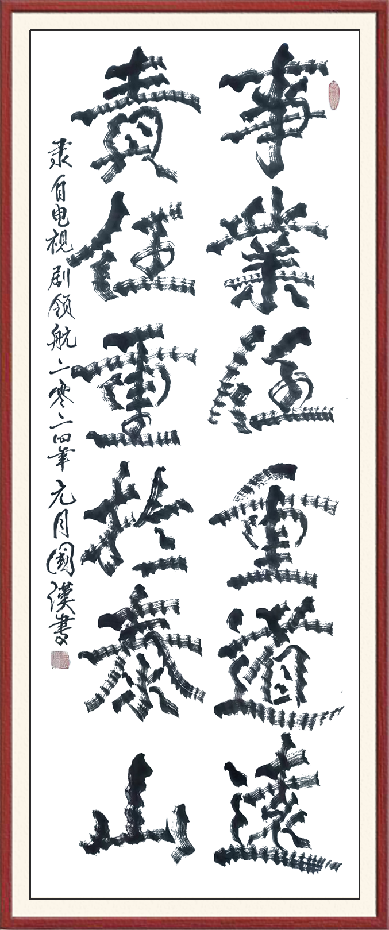 事業任重道遠
責任重於泰山
录自电视剧领航二零二四年元月國漢書